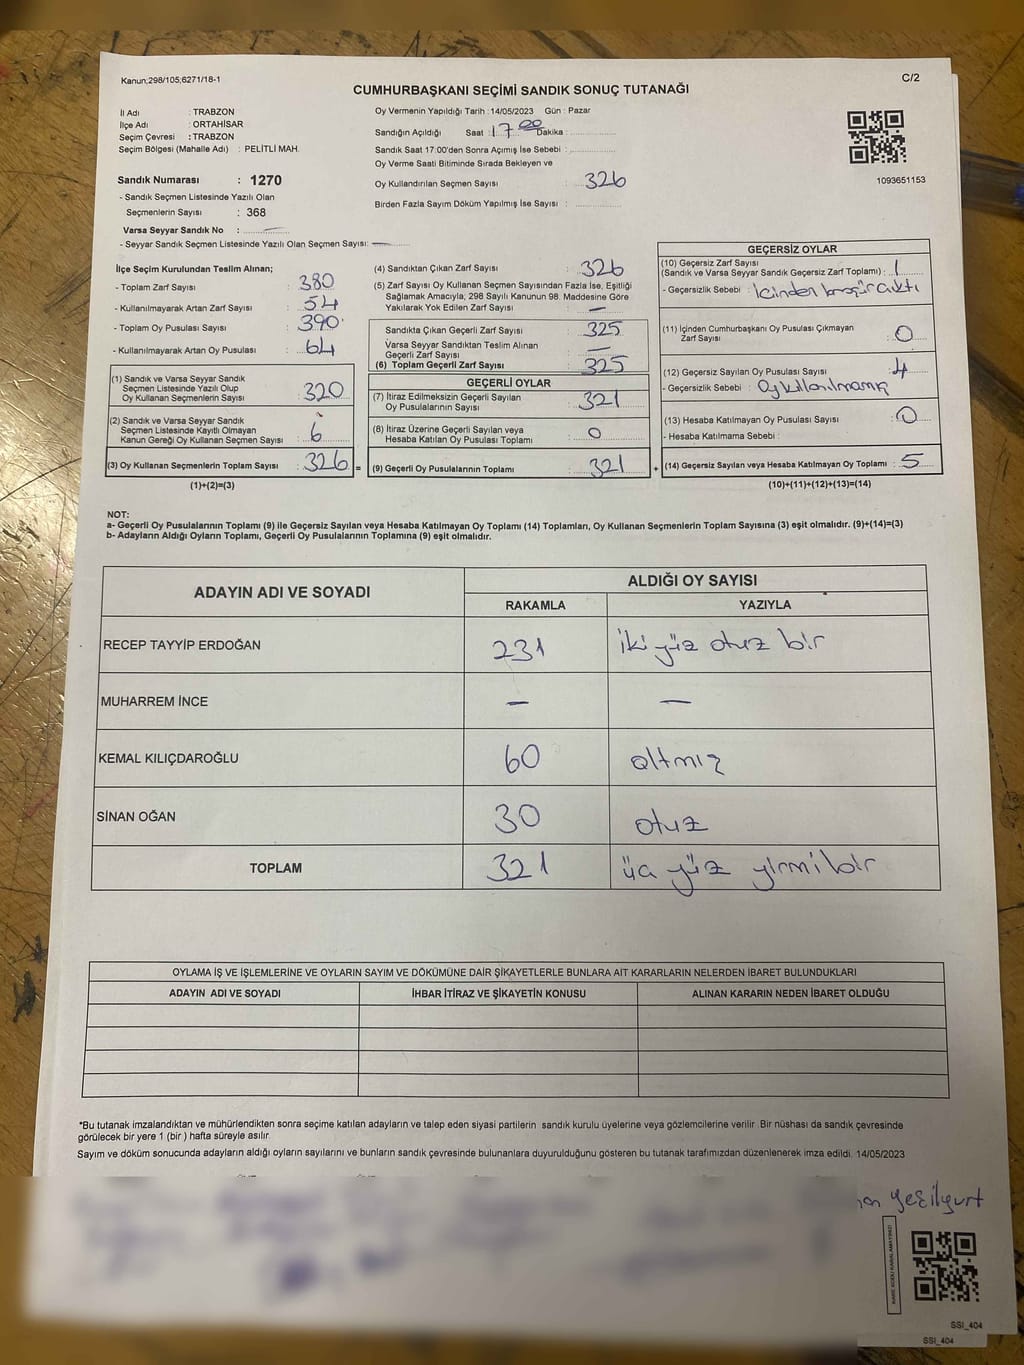 Kanun;298/105;6271/18-1
C/2
CUMHURBAŞKANI SEÇİMİ SANDIK SONUÇ TUTANAĞI
İl Adı : TRABZON
İlçe Adı : ORTAHİSAR
Seçim Çevresi : TRABZON
Seçim Bölgesi (Mahalle Adı) : PELİTLİ MAH.
Oy Vermenin Yapıldığı Tarih : 14/05/2023 Gün : Pazar
Sandığın Açıldığı Saat : 17 00 Dakika :
Sandık Saat 17:00'den Sonra Açımış İse Sebebi :
Oy Verme Saati Bitiminde Sırada Bekleyen ve
Oy Kullandırılan Seçmen Sayısı : 326
Birden Fazla Sayım Döküm Yapılmış İse Sayısı :
1093651153
Sandık Numarası : 1270
- Sandık Seçmen Listesinde Yazılı Olan
Seçmenlerin Sayısı : 368
Varsa Seyyar Sandık No :
- Seyyar Sandık Seçmen Listesinde Yazılı Olan Seçmen Sayısı: —
İlçe Seçim Kurulundan Teslim Alınan;
- Toplam Zarf Sayısı : 380
- Kullanılmayarak Artan Zarf Sayısı : 54
- Toplam Oy Pusulası Sayısı : 390
- Kullanılmayarak Artan Oy Pusulası : 64
(1) Sandık ve Varsa Seyyar Sandık
Seçmen Listesinde Yazılı Olup
Oy Kullanan Seçmenlerin Sayısı : 320
(2) Sandık ve Varsa Seyyar Sandık
Seçmen Listesinde Kayıtlı Olmayan
Kanun Gereği Oy Kullanan Seçmen Sayısı : 6
(3) Oy Kullanan Seçmenlerin Toplam Sayısı : 326 =
(1)+(2)=(3)
(4) Sandıktan Çıkan Zarf Sayısı : 326
(5) Zarf Sayısı Oy Kullanan Seçmen Sayısından Fazla İse, Eşitliği
Sağlamak Amacıyla; 298 Sayılı Kanunun 98. Maddesine Göre
Yakılarak Yok Edilen Zarf Sayısı : —
Sandıkta Çıkan Geçerli Zarf Sayısı : 325
Varsa Seyyar Sandıktan Teslim Alınan
Geçerli Zarf Sayısı : —
(6) Toplam Geçerli Zarf Sayısı : 325
GEÇERLİ OYLAR
(7) İtiraz Edilmeksizin Geçerli Sayılan
Oy Pusulalarının Sayısı : 321
(8) İtiraz Üzerine Geçerli Sayılan veya
Hesaba Katılan Oy Pusulası Toplamı : 0
(9) Geçerli Oy Pusulalarının Toplamı : 321 +
GEÇERSİZ OYLAR
(10) Geçersiz Zarf Sayısı
(Sandık ve Varsa Seyyar Sandık Geçersiz Zarf Toplamı) : 1
- Geçersizlik Sebebi : İçinden broşür çıktı
(11) İçinden Cumhurbaşkanı Oy Pusulası Çıkmayan
Zarf Sayısı : 0
(12) Geçersiz Sayılan Oy Pusulası Sayısı : 4
- Geçersizlik Sebebi : Oy kullanılmamış
(13) Hesaba Katılmayan Oy Pusulası Sayısı : 0
- Hesaba Katılmama Sebebi :
(14) Geçersiz Sayılan veya Hesaba Katılmayan Oy Toplamı : 5
(10)+(11)+(12)+(13)=(14)
NOT:
a- Geçerli Oy Pusulalarının Toplamı (9) ile Geçersiz Sayılan veya Hesaba Katılmayan Oy Toplamı (14) Toplamları, Oy Kullanan Seçmenlerin Toplam Sayısına (3) eşit olmalıdır. (9)+(14)=(3)
b- Adayların Aldığı Oyların Toplamı, Geçerli Oy Pusulalarının Toplamına (9) eşit olmalıdır.
ADAYIN ADI VE SOYADI
ALDIĞI OY SAYISI
RAKAMLA YAZIYLA
RECEP TAYYİP ERDOĞAN 231 iki yüz otuz bir
MUHARREM İNCE — —
KEMAL KILIÇDAROĞLU 60 altmış
SİNAN OĞAN 30 otuz
TOPLAM 321 üç yüz yirmi bir
OYLAMA İŞ VE İŞLEMLERİNE VE OYLARIN SAYIM VE DÖKÜMÜNE DAİR ŞİKAYETLERLE BUNLARA AİT KARARLARIN NELERDEN İBARET BULUNDUKLARI
ADAYIN ADI VE SOYADI İHBAR İTİRAZ VE ŞİKAYETİN KONUSU ALINAN KARARIN NEDEN İBARET OLDUĞU
*Bu tutanak imzalandıktan ve mühürlendikten sonra seçime katılan adayların ve talep eden siyasi partilerin sandık kurulu üyelerine veya gözlemcilerine verilir. Bir nüshası da sandık çevresinde
görülecek bir yere 1 (bir ) hafta süreyle asılır.
Sayım ve döküm sonucunda adayların aldığı oyların sayılarını ve bunların sandık çevresinde bulunanlara duyurulduğunu gösteren bu tutanak tarafımızdan düzenlenerek imza edildi. 14/05/2023
Yeşilyurt
KARE KODU KARALAMAYINIZ!
SSI_404
SSI_404